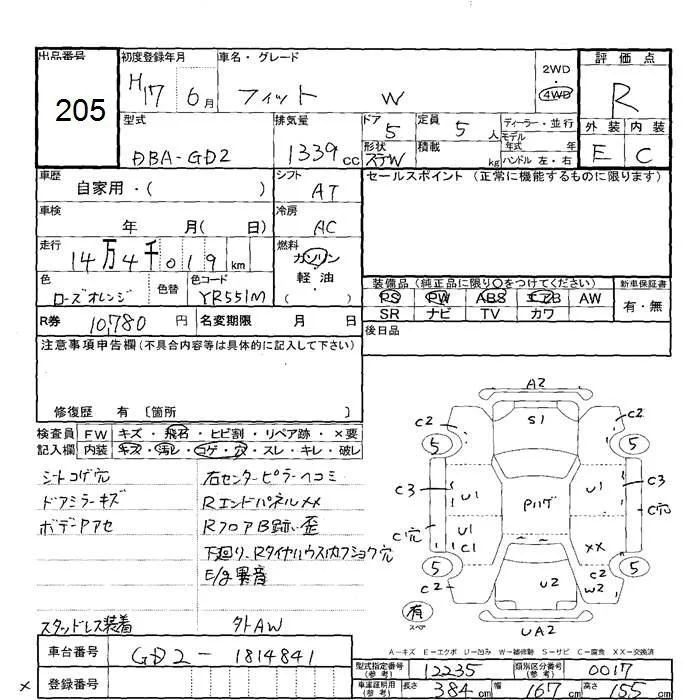 出品番号
205
初度登録年月
H17 6月
車名・グレード
フィット W
2WD
・
4WD
評価点
R
外装 内装
E C
型式
DBA-GD2
排気量
1339cc
ドア
5
定員
5人
ディーラー・並行
モデル
年式 年
ハンドル 左・右
形状
ステW
積載
kg
車歴
自家用・( )
シフト
AT
セールスポイント (正常に機能するものに限ります)
車検
年 月( 日)
冷房
AC
走行
14万4千019km
燃料
ガソリン
・
軽油
( )
色
ローズオレンジ
色替
色コード
YR551M
装備品 (純正品に限り○をつけてください)
PS PW ABS エアB AW
SR ナビ TV カワ
新車保証書
有・無
R券 10,780円
名変期限 月 日
後日品
注意事項申告欄(不具合内容等は具体的に記入して下さい)
修復歴 有 〔箇所 〕
検査員 FW キズ・飛石・ヒビ割・リペア跡・×要
記入欄 内装 キズ・汚レ・コゲ・穴・スレ・キレ・破レ
シートコゲ穴
ドアミラーキズ
ボデーPアセ
スタッドレス装着
右センターピラーヘコミ
RエンドパネルXX
RフロアB跡・歪
下廻り、Rタイヤハウス内フショク穴
E/g異音
外AW
A2
C2 S1 C2
5 5
C3 U1 Pハゲ U1 C3
C穴 U1 C1 XX C穴
5 5
C2 U2 C2 W2
有
スペア
UA2
A-キズ E-エクボ U-凹み W-補修跡 S-サビ C-腐食 XX-交換済
車台番号
GD2-1814841
登録番号
×
型式指定番号
(参考)
12235
類別区分番号
(参考)
0017
車庫証明用
(参考)
長さ 384cm 幅 167cm 高さ 155cm